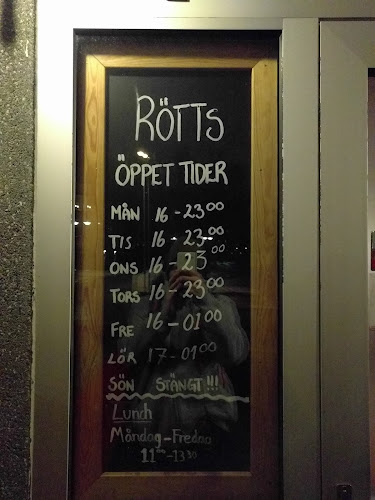 RÖTTS
ÖPPET TIDER
MÅN 16-23⁰⁰
TIS 16-23⁰⁰
ONS 16-23⁰⁰
TORS 16-23⁰⁰
FRE 16-01⁰⁰
LÖR 17-01⁰⁰
SÖN STÄNGT!!!
Lunch
Måndag-Fredag
11⁰⁰-13³⁰